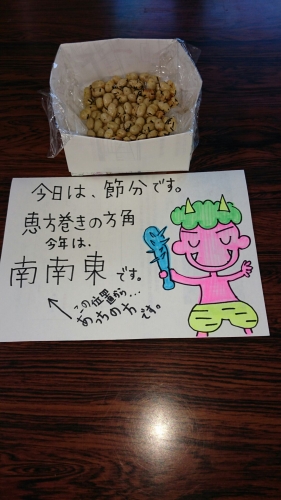 今日は、節分です。
恵方巻きの方角
今年は、
南南東です。
この位置から…
あっちの方です。